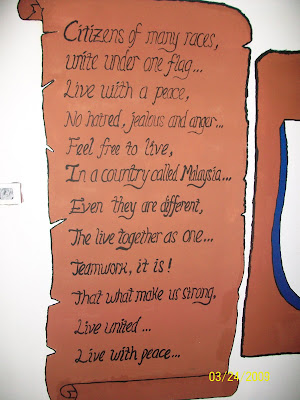 Citizens of many races,
unite under one flag...
Live with a peace,
No hatred, jealous and anger...
Feel free to live,
In a country called Malaysia...
Even they are different,
The live together as one...
Teamwork, it is!
That what make us strong,
Live united...
Live with peace...